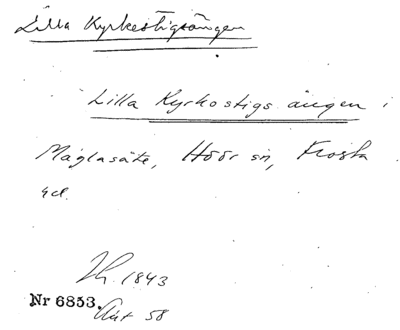 Lilla Kyrkestigsängen
Lilla Kyrkostigs ängen i
Maglasäte, Höör sn, Frosta
hd.
Lh. 1843
Nr 6853.
Akt 58